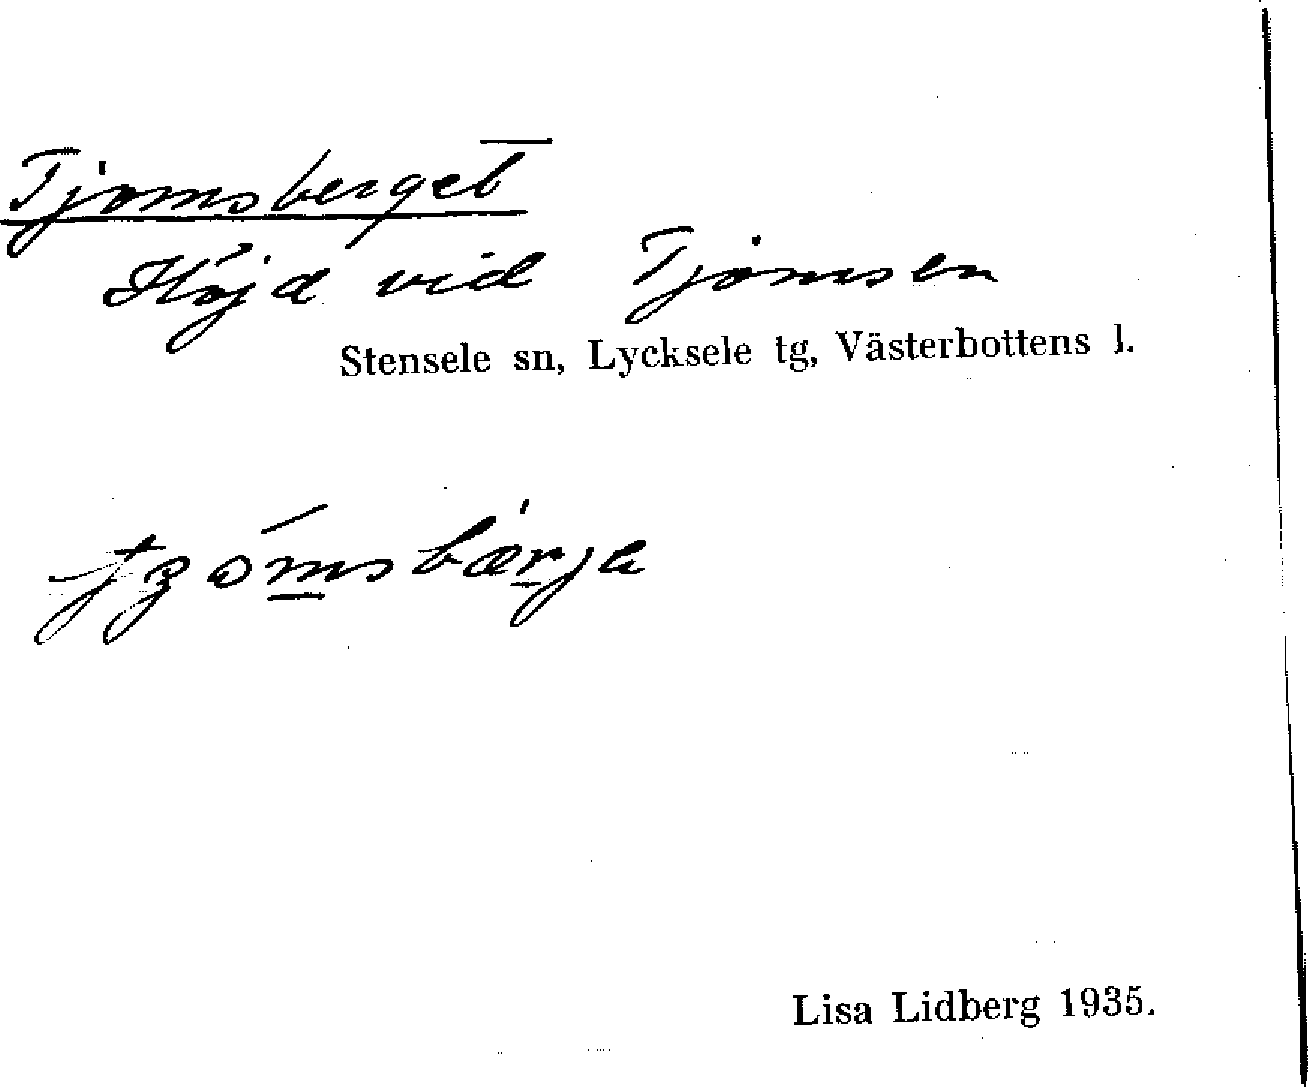 Tjomsberget
Höjd vid Tjomsen
Stensele sn, Lycksele tg, Västerbottens l.
Lisa Lidberg 1935.